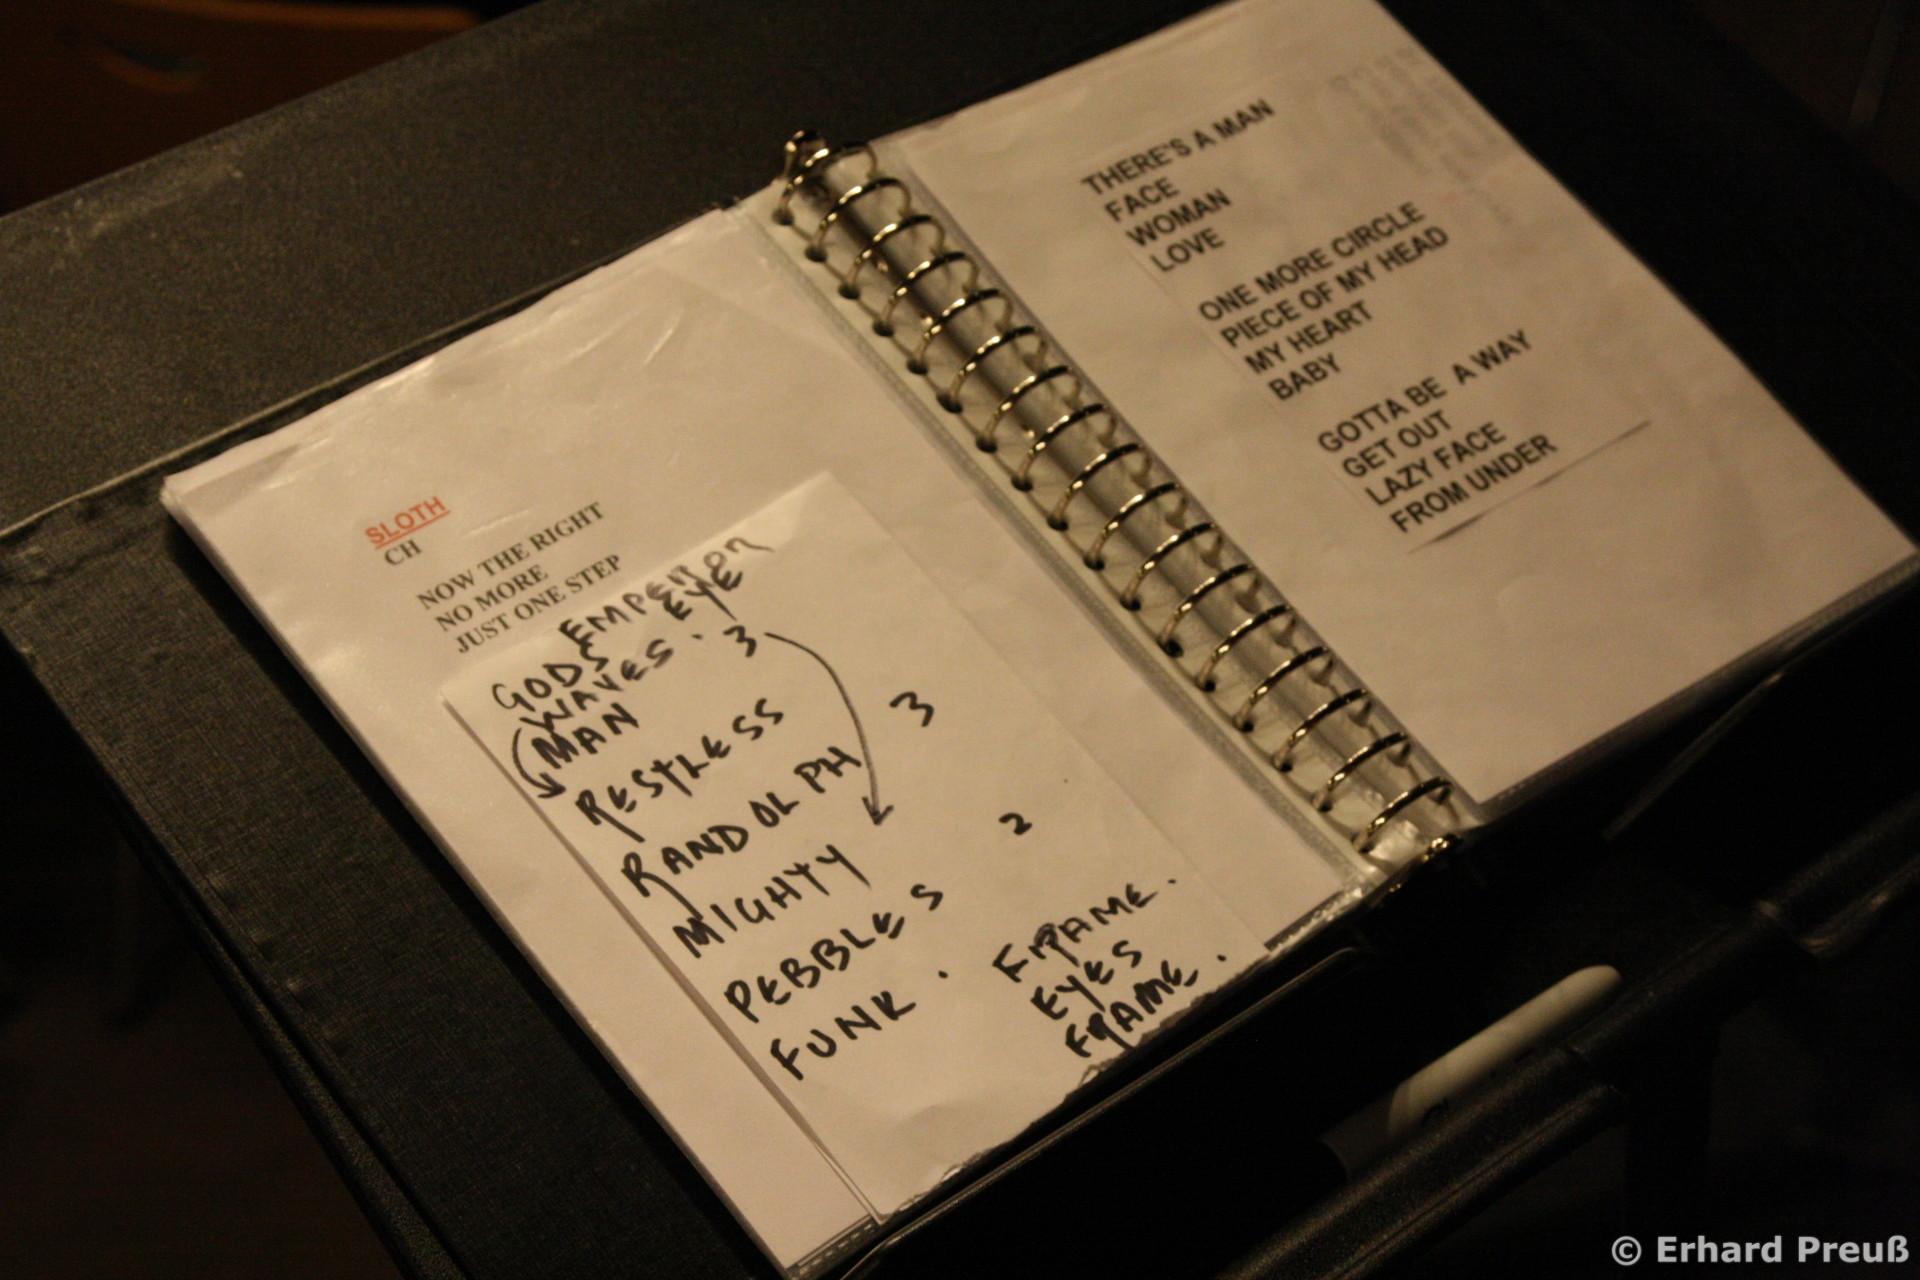 SLOTH
CH
NOW THE RIGHT
NO MORE
JUST ONE STEP
EMPEROR
GODS EYE
WAVES · 3
MAN
RESTLESS
RANDOLPH 3
MIGHTY
PEBBLES 2
FUNK .
FRAME.
EYES
FRAME.
THERE'S A MAN
FACE
WOMAN
LOVE
ONE MORE CIRCLE
PIECE OF MY HEAD
MY HEART
BABY
GOTTA BE A WAY
GET OUT
LAZY FACE
FROM UNDER
© Erhard Preuß